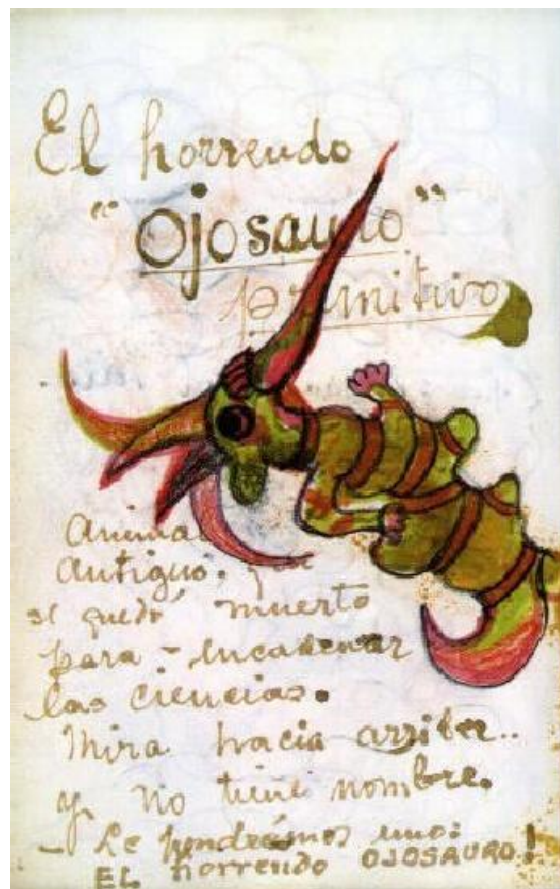 El horrendo
"Ojosauro"
primitivo
Animal
antiguo, que
se quedó muerto
para - encadenar
las ciencias.
Mira hacia arriba..
y no tiene nombre.
- Le pondremos uno:
EL horrendo OJOSAURO!